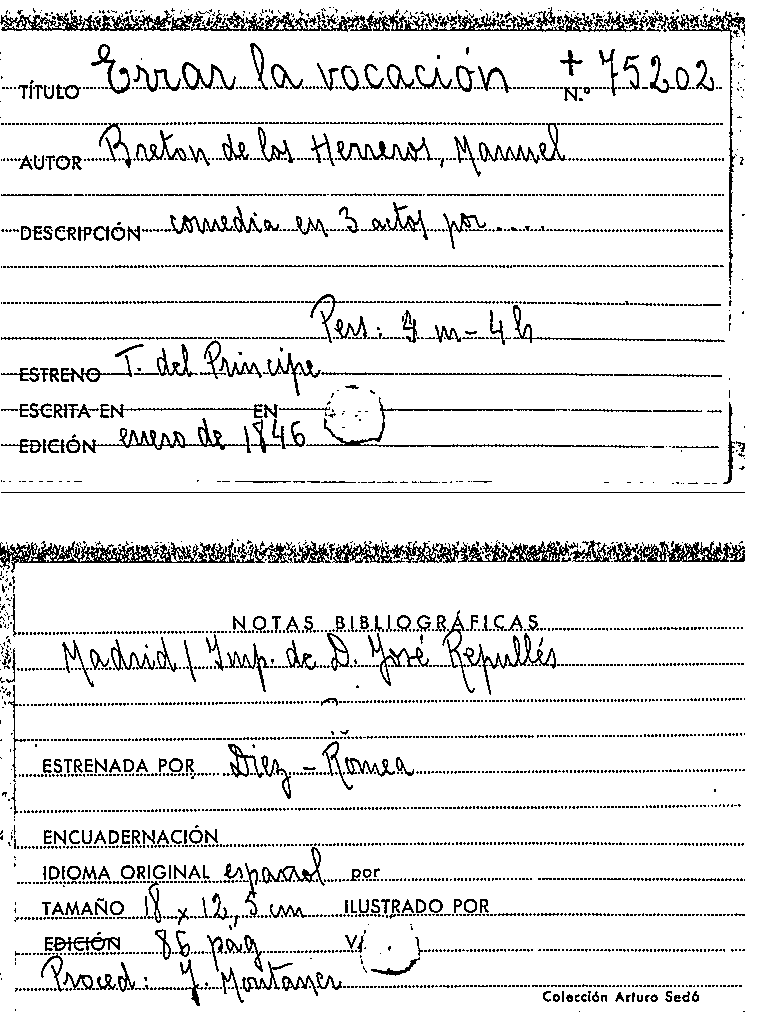 TÍTULO Errar la vocación + N.º 75202
AUTOR Breton de los Herreros, Manuel
DESCRIPCIÓN comedia en 3 actos por....
Pers: 4 m - 4 h
ESTRENO T. del Principe
ESCRITA EN EN
EDICIÓN enero de 1846
NOTAS BIBLIOGRÁFICAS
Madrid / Imp. de D. José Repullés
ESTRENADA POR Diez - Romea
ENCUADERNACIÓN
IDIOMA ORIGINAL español por
TAMAÑO 18 x 12,5 cm ILUSTRADO POR
EDICIÓN 86 pág V.
Proced: J. Montaner
Colección Arturo Sedó